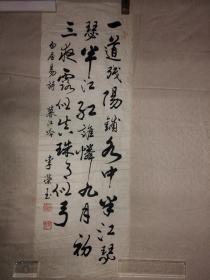 一道残陽鋪水中半江瑟
瑟半江红誰憐九月初
三夜露似真珠月似弓
白居易诗 暮江吟 李荣玉